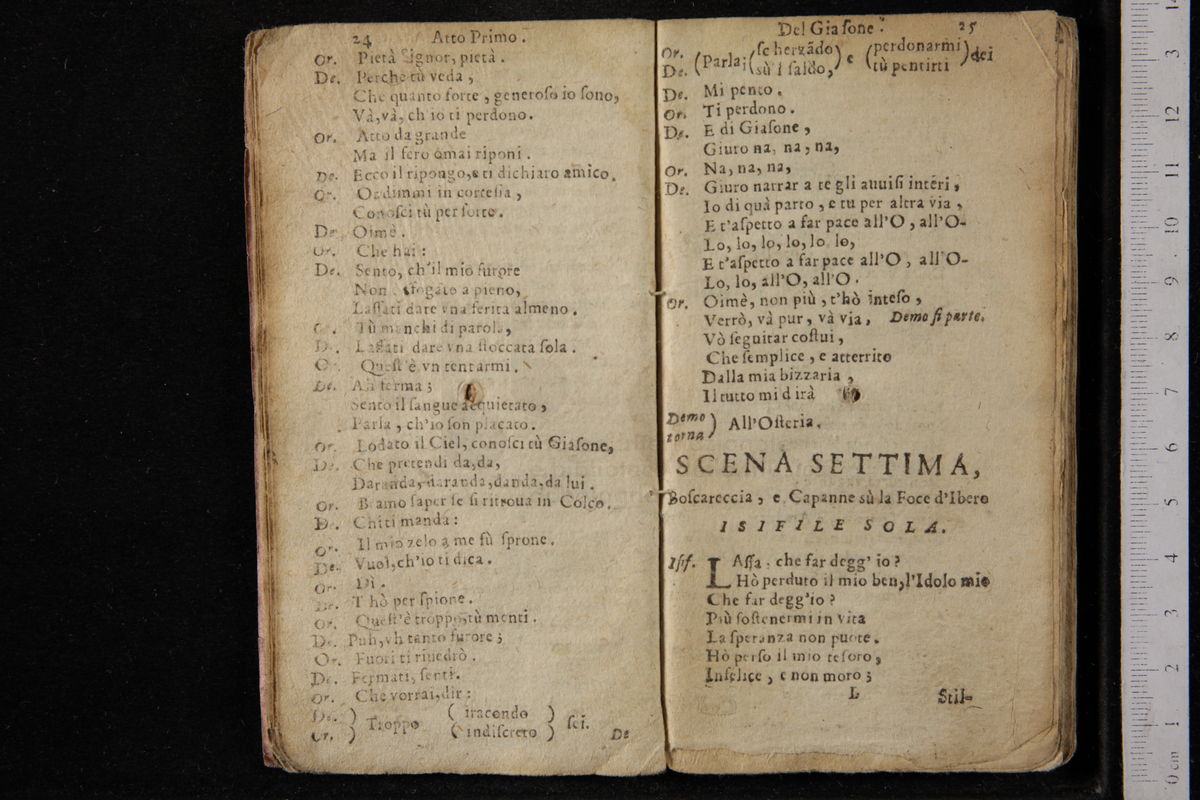 24 Atto Primo.
Or. Pietà Signor, pietà.
De. Perche tù veda,
Che quanto forte, generoſo io ſono,
Và, và, ch'io ti perdono.
Or. Atto da grande
Ma il fero omai riponi.
De. Ecco il ripongo, e ti dichiaro amico.
Or. Or dimmi in corteſia,
Conoſci tù per ſorte.
De. Oimè.
Or. Che hai:
De. Sento, ch'il mio furore
Non sfogato a pieno,
Laſſati dare vna ferita almeno.
O. Tù manchi di parola,
D. Laſſati dare vna ſtoccata ſola.
O. Queſt'è vn tentarmi.
De. Ah ferma;
Sento il ſangue acquietato,
Parla, ch'io ſon placato.
Or. Lodato il Ciel, conoſci tù Giaſone,
De. Che pretendi da, da,
Daranda, daranda, danda, da lui.
Or. Bramo ſaper ſe ſi ritroua in Colco.
De. Chi ti manda:
Or. Il mio zelo a me fù ſprone.
De. Vuoi, ch'io ti dica.
Or. Dì.
De. T'hò per ſpione.
Or. Queſt'è troppo, tù menti.
De. Puh, vh tanto furore;
Or. Fuori ti riuedrò.
De. Fermati, ſenti.
Or. Che vorrai, dir:
De. ) Troppo ( iracondo ) ſei.
Or. ) ( indiſcreto )
De
Del Giaſone. 25
Or. (Parla; (ſcherzãdo) e (perdonarmi) dei
De. ( (sù'l ſaldo,) (tù pentirti )
De. Mi pento.
Or. Ti perdono.
De. E di Giaſone,
Giuro na, na, na,
Or. Na, na, na,
De. Giuro narrar a te gli auuiſi intéri,
Io di quà parto, e tu per altra via,
E t'aſpetto a far pace all'O, all'O-
Lo, lo, lo, lo, lo, lo,
E t'aſpetto a far pace all'O, all'O-
Lo, lo, all'O, all'O.
Or. Oimè, non più, t'hò inteſo,
Verrò, và pur, và via, Demo ſi parte.
Vò ſeguitar coſtui,
Che ſemplice, e atterrito
Dalla mia bizzaria,
Il tutto mi dirà
Demo ) All'Oſteria.
torna )
SCENA SETTIMA,
Boſcareccia, e Capanne sù la Foce d'Ibero
ISIFILE SOLA.
Iſif. LAſſa, che far degg'io?
Hò perduto il mio ben, l'Idolo mio
Che far degg'io?
Più ſoſtenermi in vita
La ſperanza non puote.
Hò perſo il mio teſoro,
Infelice, e non moro;
L Stil-